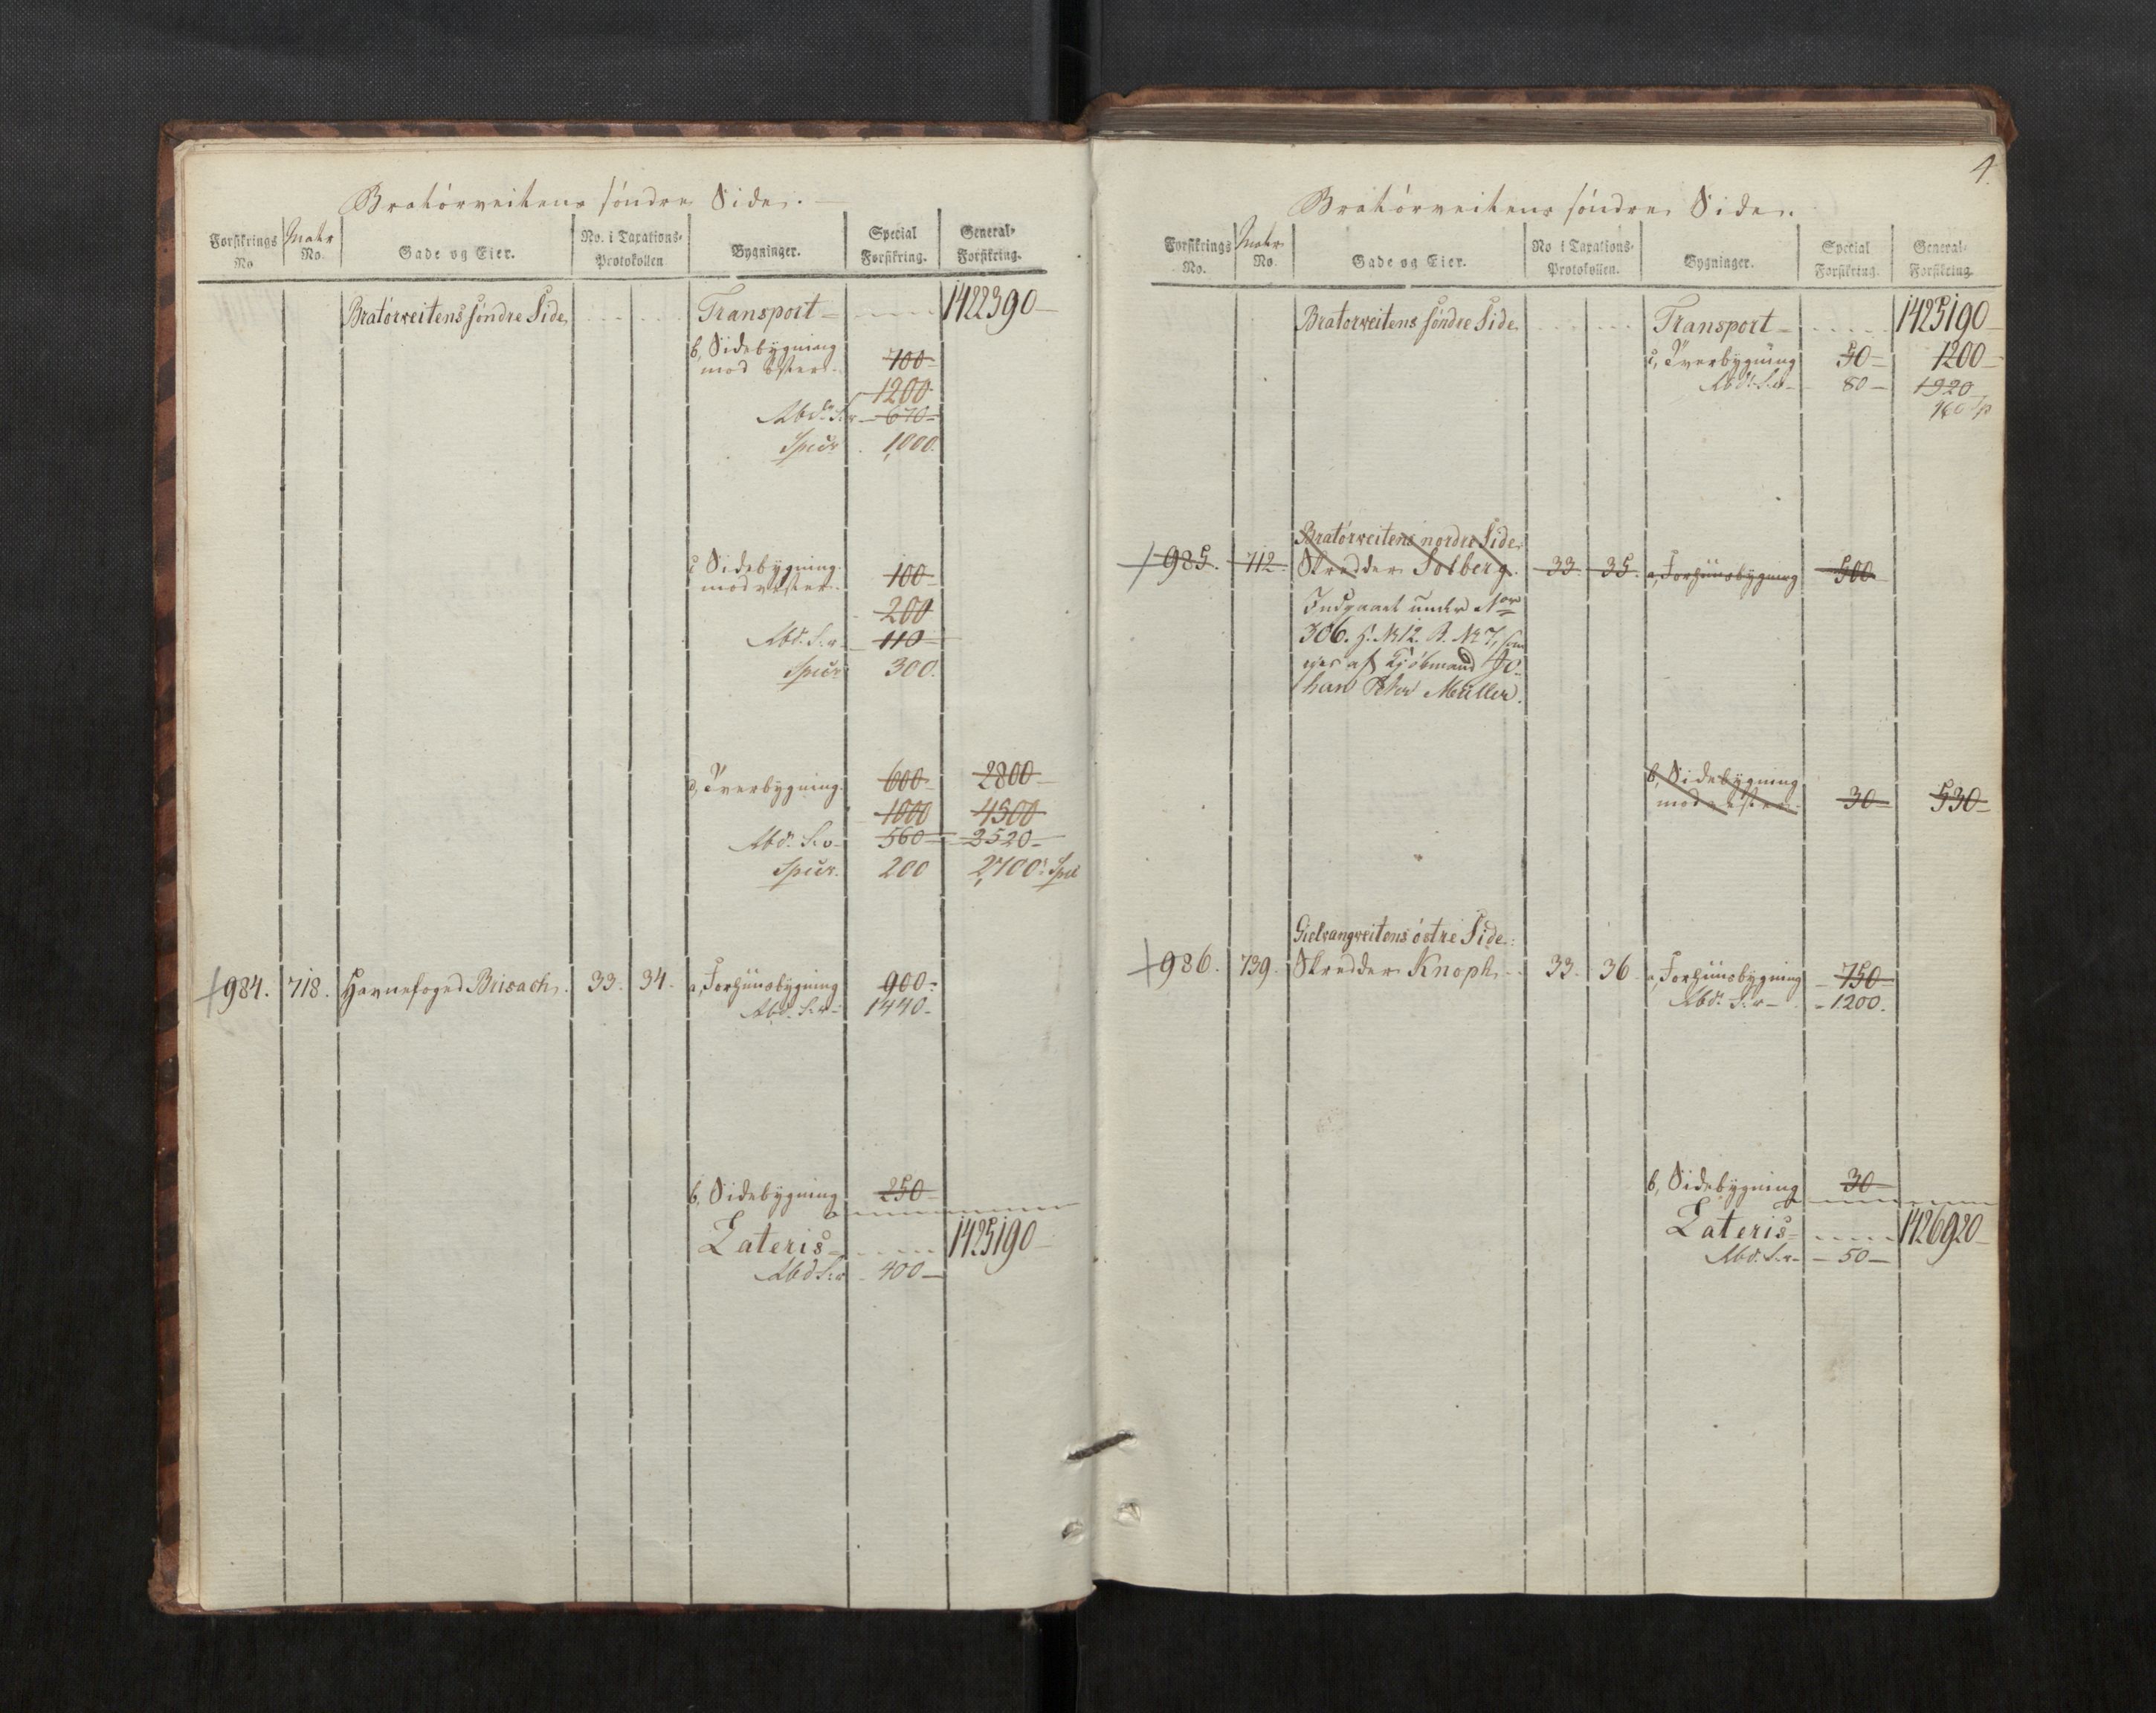 Bratörveitens söndre Side.
Forsikrings No
Matr No.
Gade og Eier.
No. i Taxations-Protokollen
Bygninger.
Special Forsikring.
General-Forsikring.
Bratörveitens söndre Side Transport 1422390
b, Sidebygning
mod Öster 700
1200
Abd. S.v. 670
Spec. 1000.
c, Sidebygning
mod vester 100
200
Abd. S.v. 110
Spec. 300.
d, Tverbygning 600 2800
1000 4500
Abd. S.v. 560 2520
Spec. 200 2700 Spec
984. 718. Havnefoged Brisach. 33. 34. a, Forhuusbygning 900
Abd. S.v. 1440
b, Sidebygning 250
Lateris 1425190
Abd S.v. 400
4.
Bratörveitens söndre Side.
Forsikrings No.
Matr. No.
Gade og Eier.
No i Taxations-Protokollen.
Bygninger.
Special Forsikring.
General-Forsikring
Bratörveitens söndre Side Transport 1425190
c, Tverbygning 50 1200
Abd. S.v. 80 1920
Bratörveitens nordre Side
985. 712. Skredder Solberg. 33. 35. a, Forhuusbygning 500
Indgaaet under No
306. H. No 12. B. No 7, som
eies af Kjöbmand Jo-
han Peter Müller.
b, Sidebygning
mod vester 30 530
Gielvangveitens östre Side.
986. 739. Skredder Knoph. 33. 36. a, Forhuusbygning 750
Abd. S.v. 1200.
b, Sidebygning 30
Lateris 1426920
Abd. S.v. 50